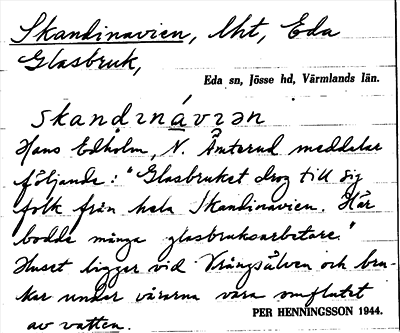 Skandinavien, lht, Eda
Glasbruk,
Eda sn, Jösse hd, Värmlands län.
skandinávien
Hans Edholm, N. Åmterud meddelar
följande: "Glasbruket drog till sig
folk från hela Skandinavien. Här
bodde många glasbruksarbetare."
Huset ligger vid Vrångsälven och bru-
kar under vårarna vara omflutet
av vatten.
PER HENNINGSSON 1944.